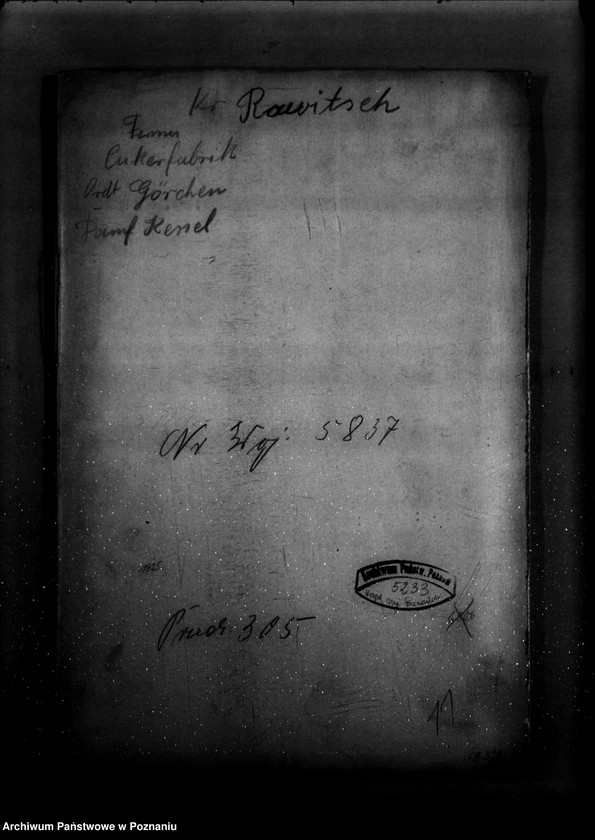 Kr Rawitsch
Firma
Cukerfabrik
Ordt Görchen
Damf Kessel
Nr 5837
1925
Archiwum Państw. Poznań
5233
Prudr. 305
11
Archiwum Państwowe w Poznaniu